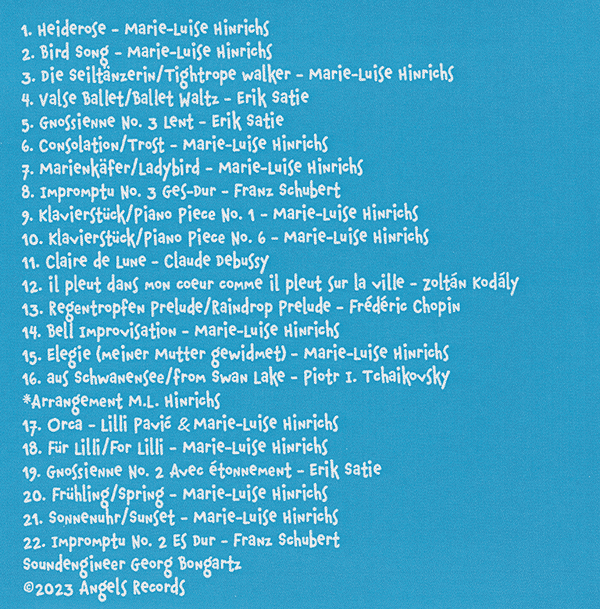 1. Heiderose - Marie-Luise Hinrichs
2. Bird Song - Marie-Luise Hinrichs
3. Die Seiltänzerin/Tightrope walker - Marie-Luise Hinrichs
4. Valse Ballet/Ballet Waltz - Erik Satie
5. Gnossienne No. 3 Lent - Erik Satie
6. Consolation/Trost - Marie-Luise Hinrichs
7. Marienkäfer/Ladybird - Marie-Luise Hinrichs
8. Impromptu No. 3 Ges-Dur - Franz Schubert
9. Klavierstück/Piano Piece No. 1 - Marie-Luise Hinrichs
10. Klavierstück/Piano Piece No. 6 - Marie-Luise Hinrichs
11. Claire de Lune - Claude Debussy
12. il pleut dans mon coeur comme il pleut sur la ville - Zoltán Kodály
13. Regentropfen Prelude/Raindrop Prelude - Frédéric Chopin
14. Bell Improvisation - Marie-Luise Hinrichs
15. Elegie (meiner Mutter gewidmet) - Marie-Luise Hinrichs
16. aus Schwanensee/from Swan Lake - Piotr I. Tchaikovsky
*Arrangement M.L. Hinrichs
17. Orca - Lilli Pavić & Marie-Luise Hinrichs
18. Für Lilli/For Lilli - Marie-Luise Hinrichs
19. Gnossienne No. 2 Avec étonnement - Erik Satie
20. Frühling/Spring - Marie-Luise Hinrichs
21. Sonnenuhr/Sunset - Marie-Luise Hinrichs
22. Impromptu No. 2 Es Dur - Franz Schubert
Soundengineer Georg Bongartz
©2023 Angels Records